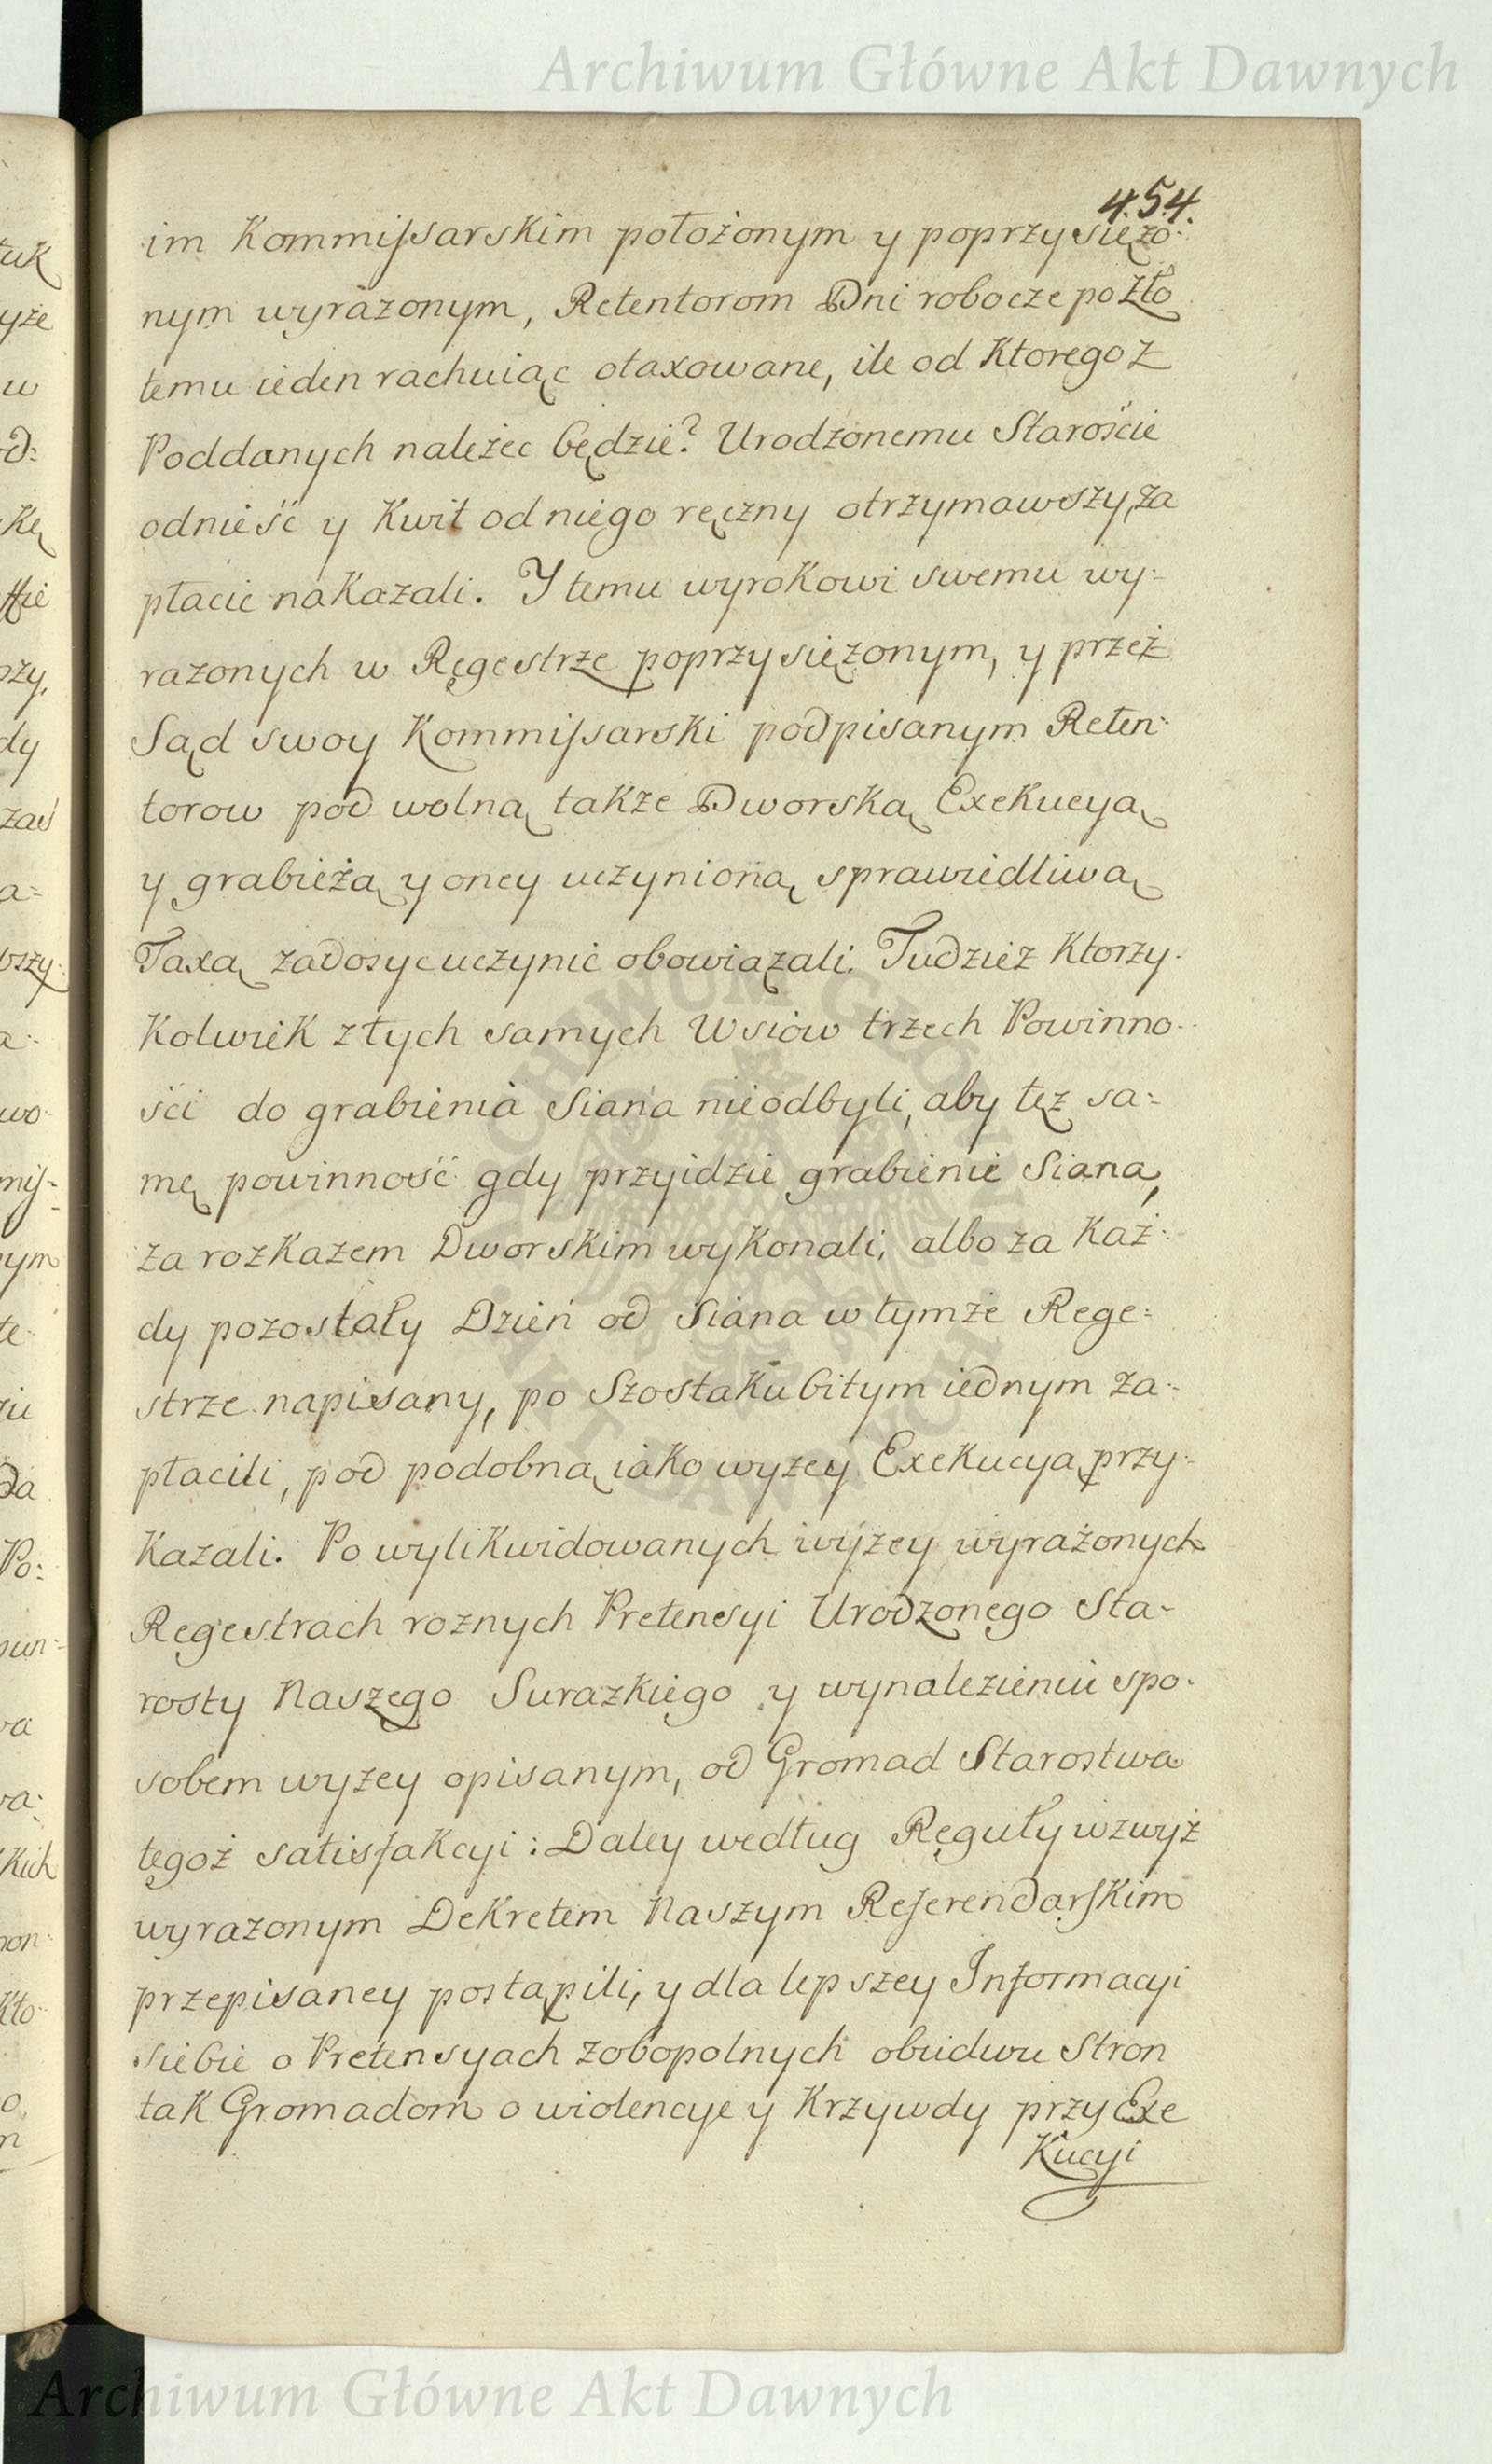 Archiwum Główne Akt Dawnych
454.
im Kommissarskim położonym y poprzysięzo:
nym wyrażonym, Retentorom Dni robocze po Zło
temu ieden rachuiąc otaxowane, ile od Ktorego z
Poddanych należec będzie? Urodzonemu Staroście
odnieść y Kwit od niego ręczny otrzymawszy, za
płacic naKazali. Y temu wyroKowi swemu wy:
razonych w Regestrze poprzysięzonym, y przez
Sąd swoy Kommissarski podpisanym Reten:
torow pod wolną takze Dworską Exekucyą
y grabieżą y oney uczynioną sprawiedliwą
Taxą zadosyc uczynic obowiązali. Tudzież Ktorzy:
Kolwiek z tych samych Wsiow trzech Powinno:
ści do grabienia Siana nieodbyli, aby tęz sa:
mę powinność gdy przyidzie grabienie Siana,
za rozKazem Dworskim wyKonali, albo za Każ:
dy pozostały Dzień od Siana w tymże Rege:
strze napisany, po Szostaku bitym iednym za:
płacili, pod podobną iako wyzey Exekucyą przy:
Kazali. Po wyliKwidowanych wyzey wyrażonych
Regestrach roznych Pretensyi Urodzonego Sta:
rosty Naszego Surazkiego y wynalezieniu spo:
sobem wyzey opisanym, od Gromad Starostwa
tegoż satisfakcyi: Daley według Reguły wzwyż
wyrazonym DeKretem Naszym Referendarskim
przepisaney postąpili, y dla lepszey Informacyi
siebie o Pretensyach zobopolnych obudwu Stron
tak Gromadom o wiolencye y Krzywdy przy Exe
Kucyi
Archiwum Główne Akt Dawnych